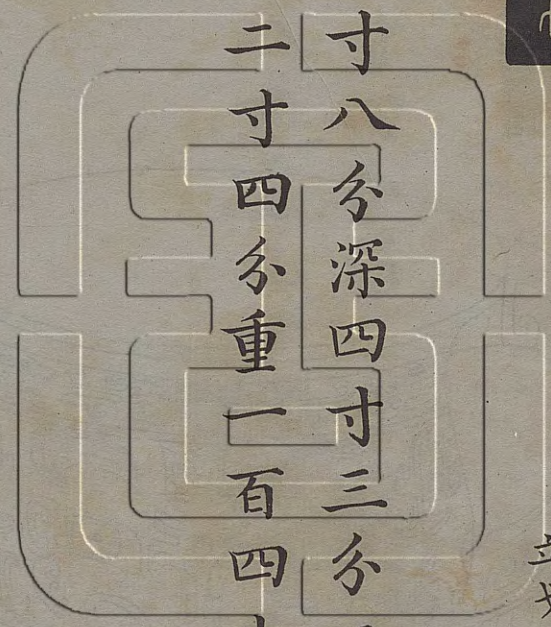 寸八分深四寸三分
二寸四分重一百四